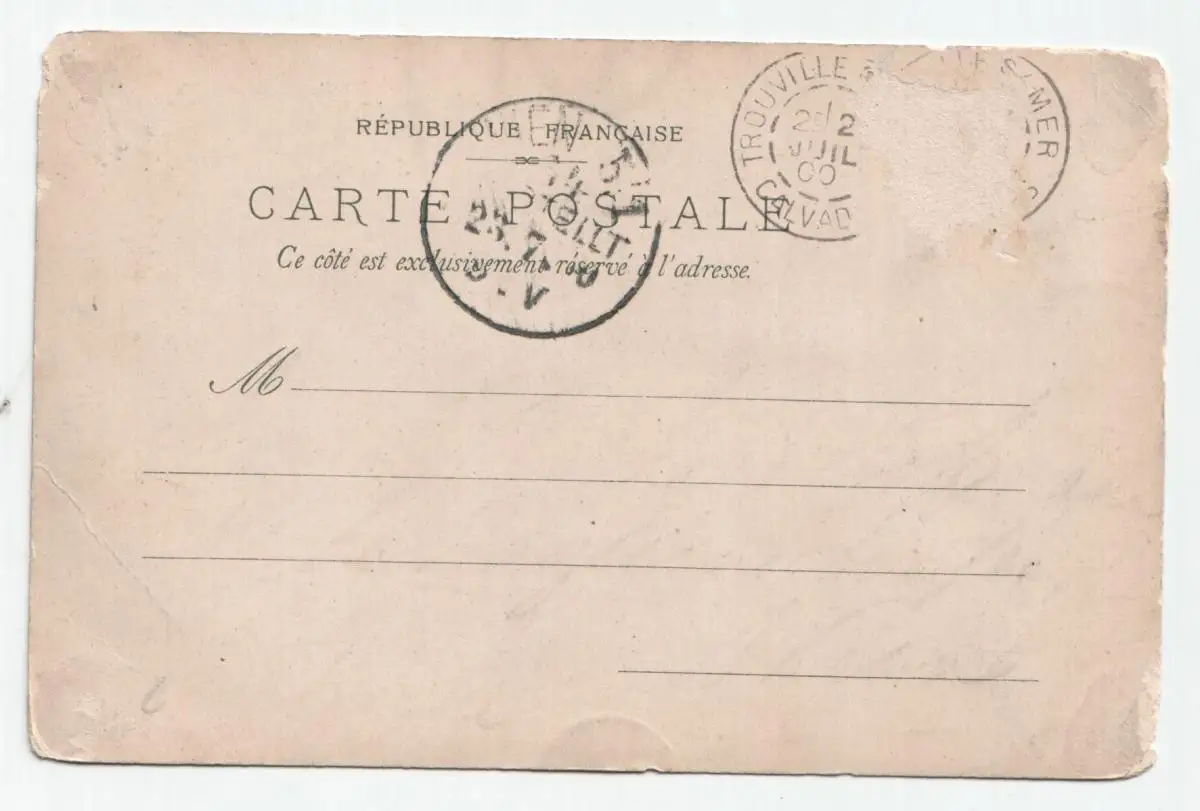 RÉPUBLIQUE FRANÇAISE
CARTE POSTALE
Ce côté est exclusivement réservé à l'adresse.
M
TROUVILLE S/MER
JUIL
00
CALVAD